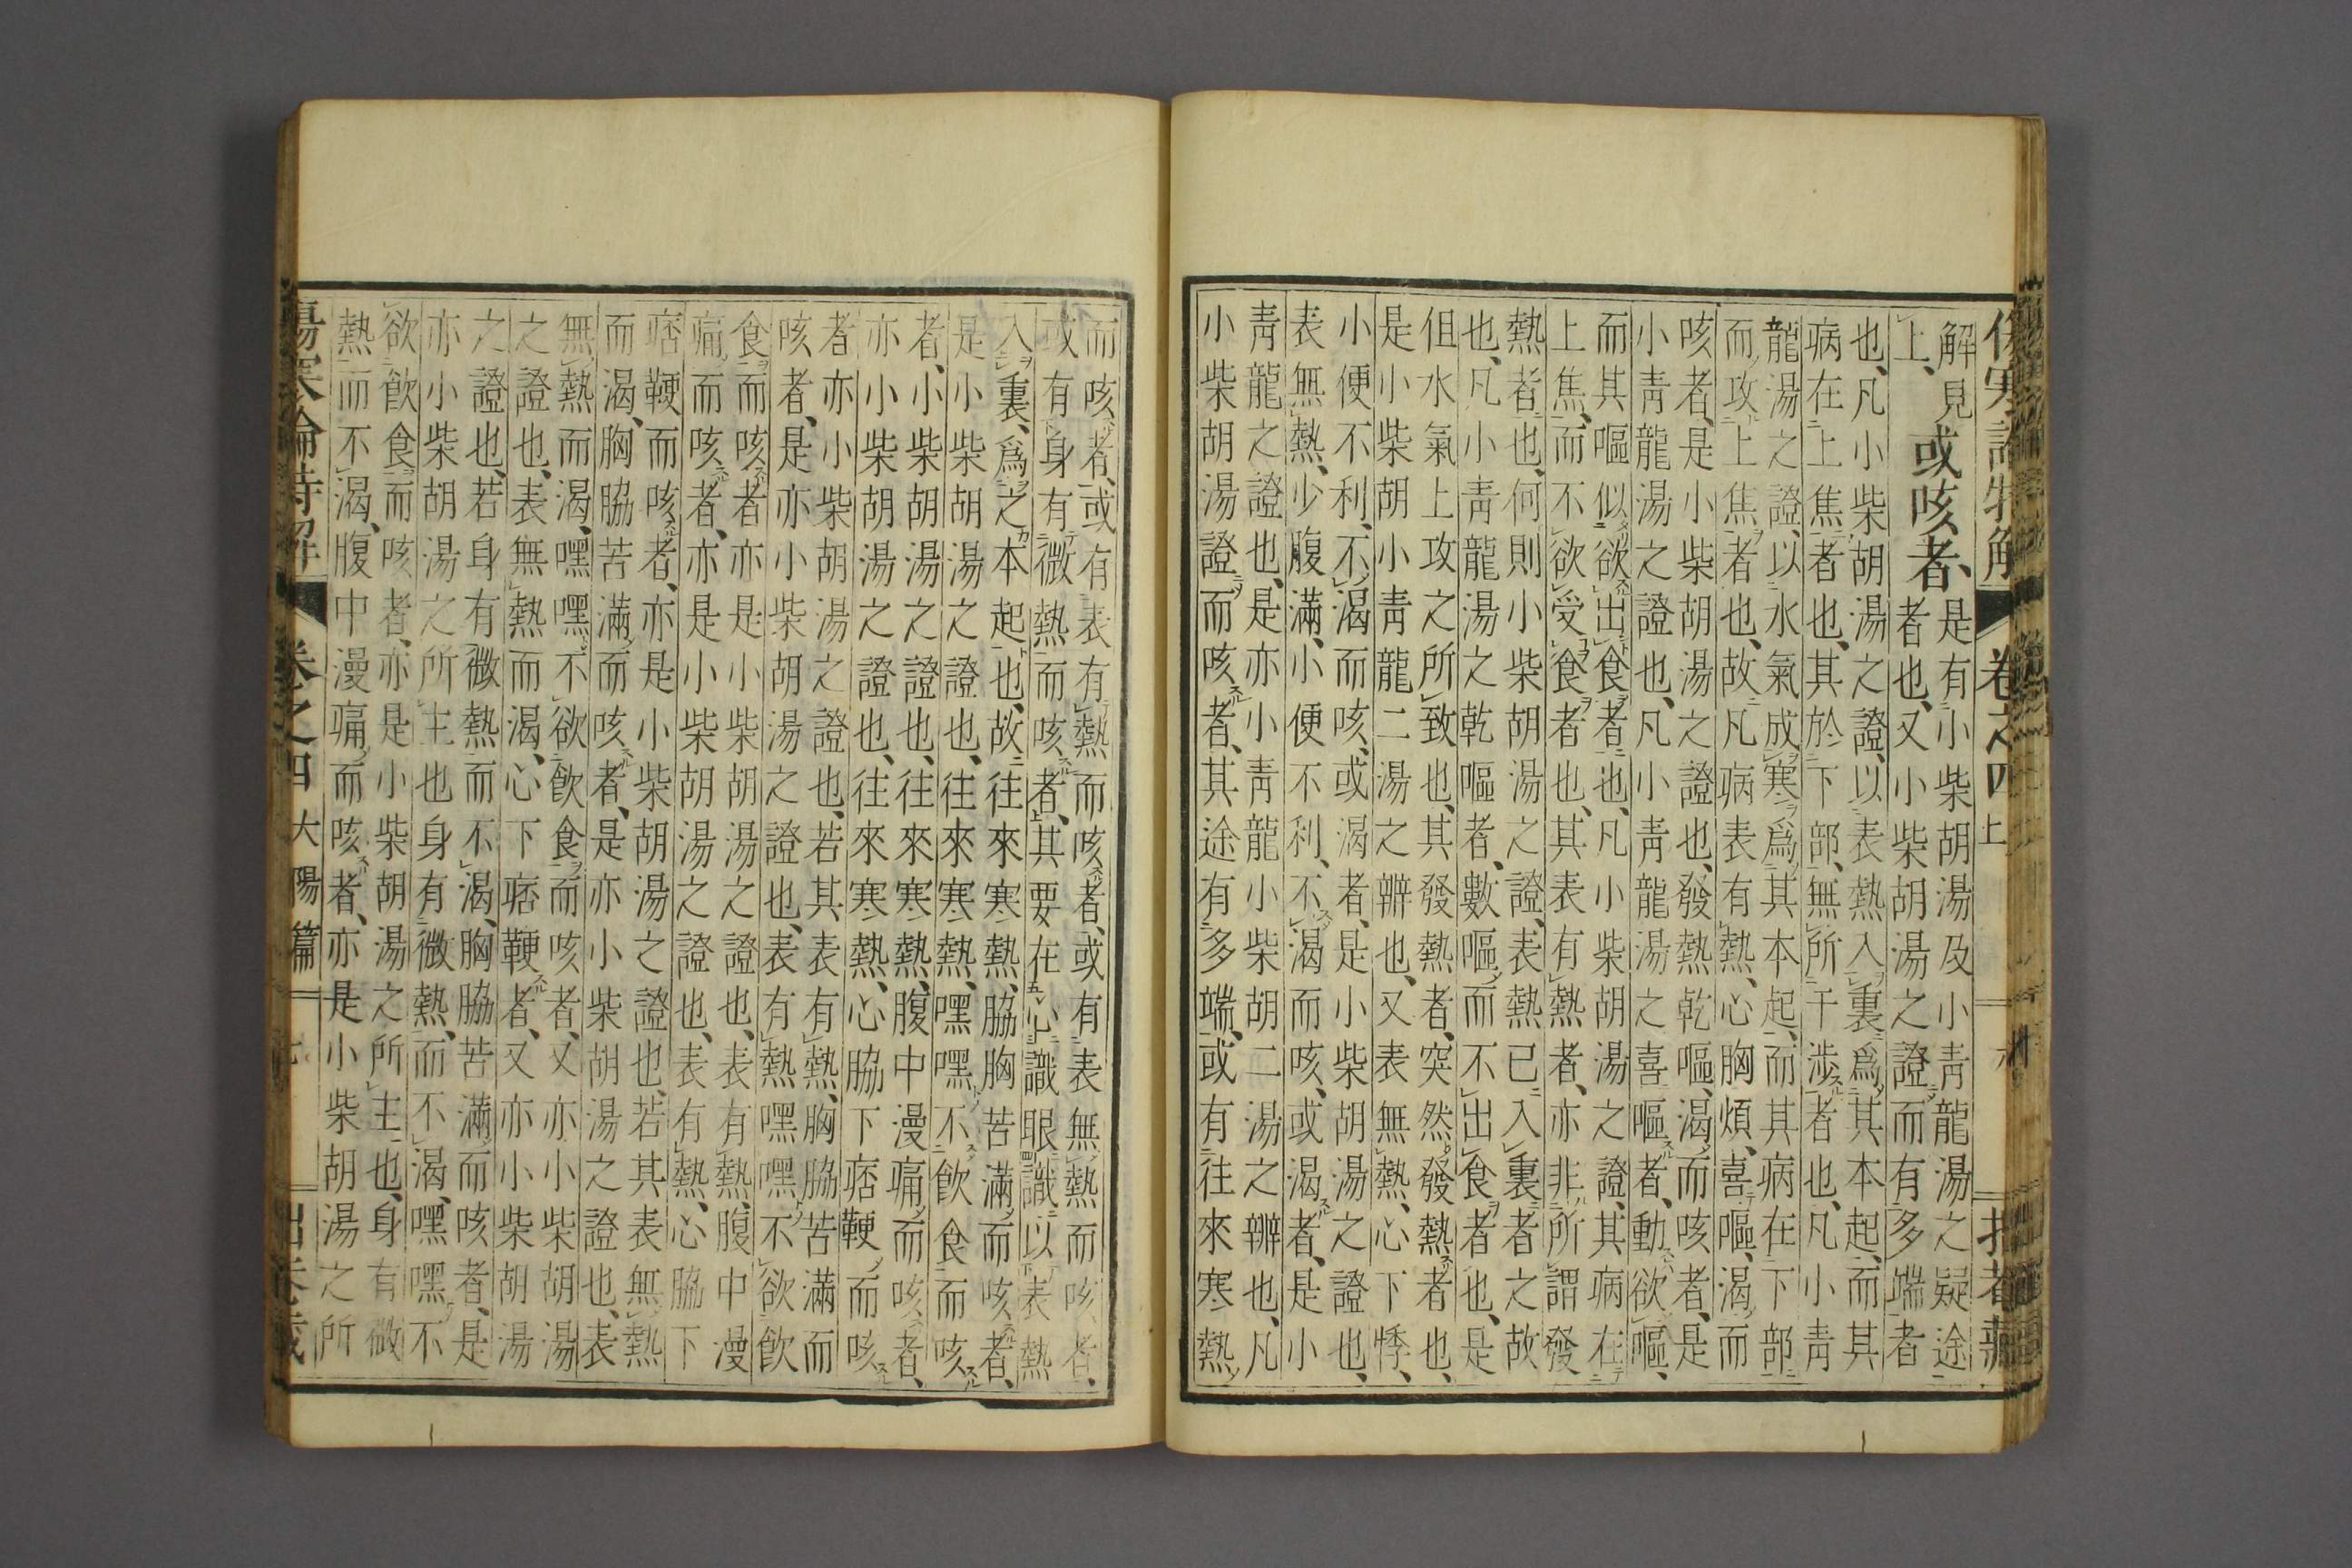 傷寒論特解 卷之四 上 六
解見上、或咳者、
是有小柴胡湯及小靑龍湯之疑途
者也、又小柴胡湯之證而有多端者
也、凡小柴胡湯之證、以表熱入裏爲其本起、而其
病在上焦者也、其於下部、無所干渉者也、凡小靑
龍湯之證、以水氣成寒爲其本起、而其病在下部
而攻上焦者也、故凡病表有熱、心胸煩、喜嘔、渴而
咳者、是小柴胡湯之證也、發熱乾嘔、渴而咳者、是
小靑龍湯之證也、凡小靑龍湯之喜嘔者、動欲嘔、
而其嘔似欲出食者也、凡小柴胡湯之證、其病在
上焦、而不欲受食者也、其表有熱者、亦非所謂發
熱者也、何則小柴胡湯之證、表熱已入裏者之故
也、凡小靑龍湯之乾嘔者、數嘔而不出食者也、是
伹水氣上攻之所致也、其發熱者、突然發熱者也、
是小柴胡小靑龍二湯之辨也、又表無熱、心下悸、
小便不利、不渴而咳、或渴者、是小柴胡湯之證也、
表無熱、少腹滿、小便不利、不渴而咳、或渴者、是小
靑龍之證也、是亦小靑龍小柴胡二湯之辨也、凡
小柴胡湯證而咳者、其途有多端、或有往來寒熱
而咳者、或有表有熱而咳者、或有表無熱而咳者、
或有身有微熱而咳者、其要在心識眼識、以表熱
入裏、爲之本起也、故往來寒熱、脇胸苦滿而咳者、
是小柴胡湯之證也、往來寒熱、嘿嘿不飮食而咳
者、小柴胡湯之證也、往來寒熱、腹中漫痛而咳者、
亦小柴胡湯之證也、往來寒熱、心脇下痞鞕而咳
者亦小柴胡湯之證也、若其表有熱、胸脇苦滿而
咳者、是亦小柴胡湯之證也、表有熱嘿嘿不欲飮
食而咳者亦是小柴胡湯之證也、表有熱、腹中漫
痛而咳者、亦是小柴胡湯之證也、表有熱、心脇下
痞鞕而咳者、亦是小柴胡湯之證也、若其表無熱
而渴、胸脇苦滿而咳者、是亦小柴胡湯之證也、表
無熱而渴、嘿嘿不欲飮食而咳者、又亦小柴胡湯
之證也、表無熱而渴、心下痞鞕者、又亦小柴胡湯
之證也、若身有微熱而不渴、胸脇苦滿而咳者、是
亦小柴胡湯之所主也身有微熱、而不渴、嘿嘿不
欲飮食而咳者、亦是小柴胡湯之所主也、身有微
熱而不渴、腹中漫痛而咳者、亦是小柴胡湯之所
傷寒論特解 卷之四 大陽篇 七